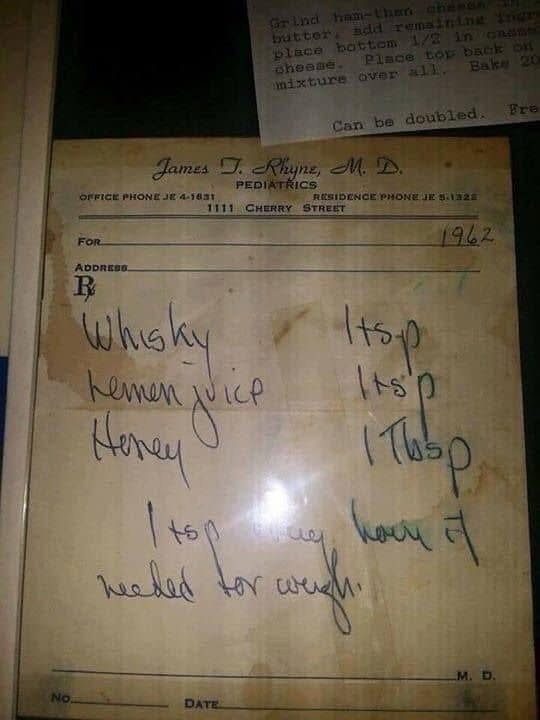 Grind ham-then cheese
butter, add remaining
place bottom 1/2 in
cheese. Place top back on
mixture over all. Bake 20
Can be doubled.
James T. Rhyne, M. D.
PEDIATRICS
OFFICE PHONE JE 4-1631 RESIDENCE PHONE JE 5-1322
1111 CHERRY STREET
FOR 1962
ADDRESS
℞
Whisky 1 tsp
Lemon juice 1 tsp
Honey 1 Tbsp
1 tsp every hour if
needed for cough.
M. D.
NO. DATE